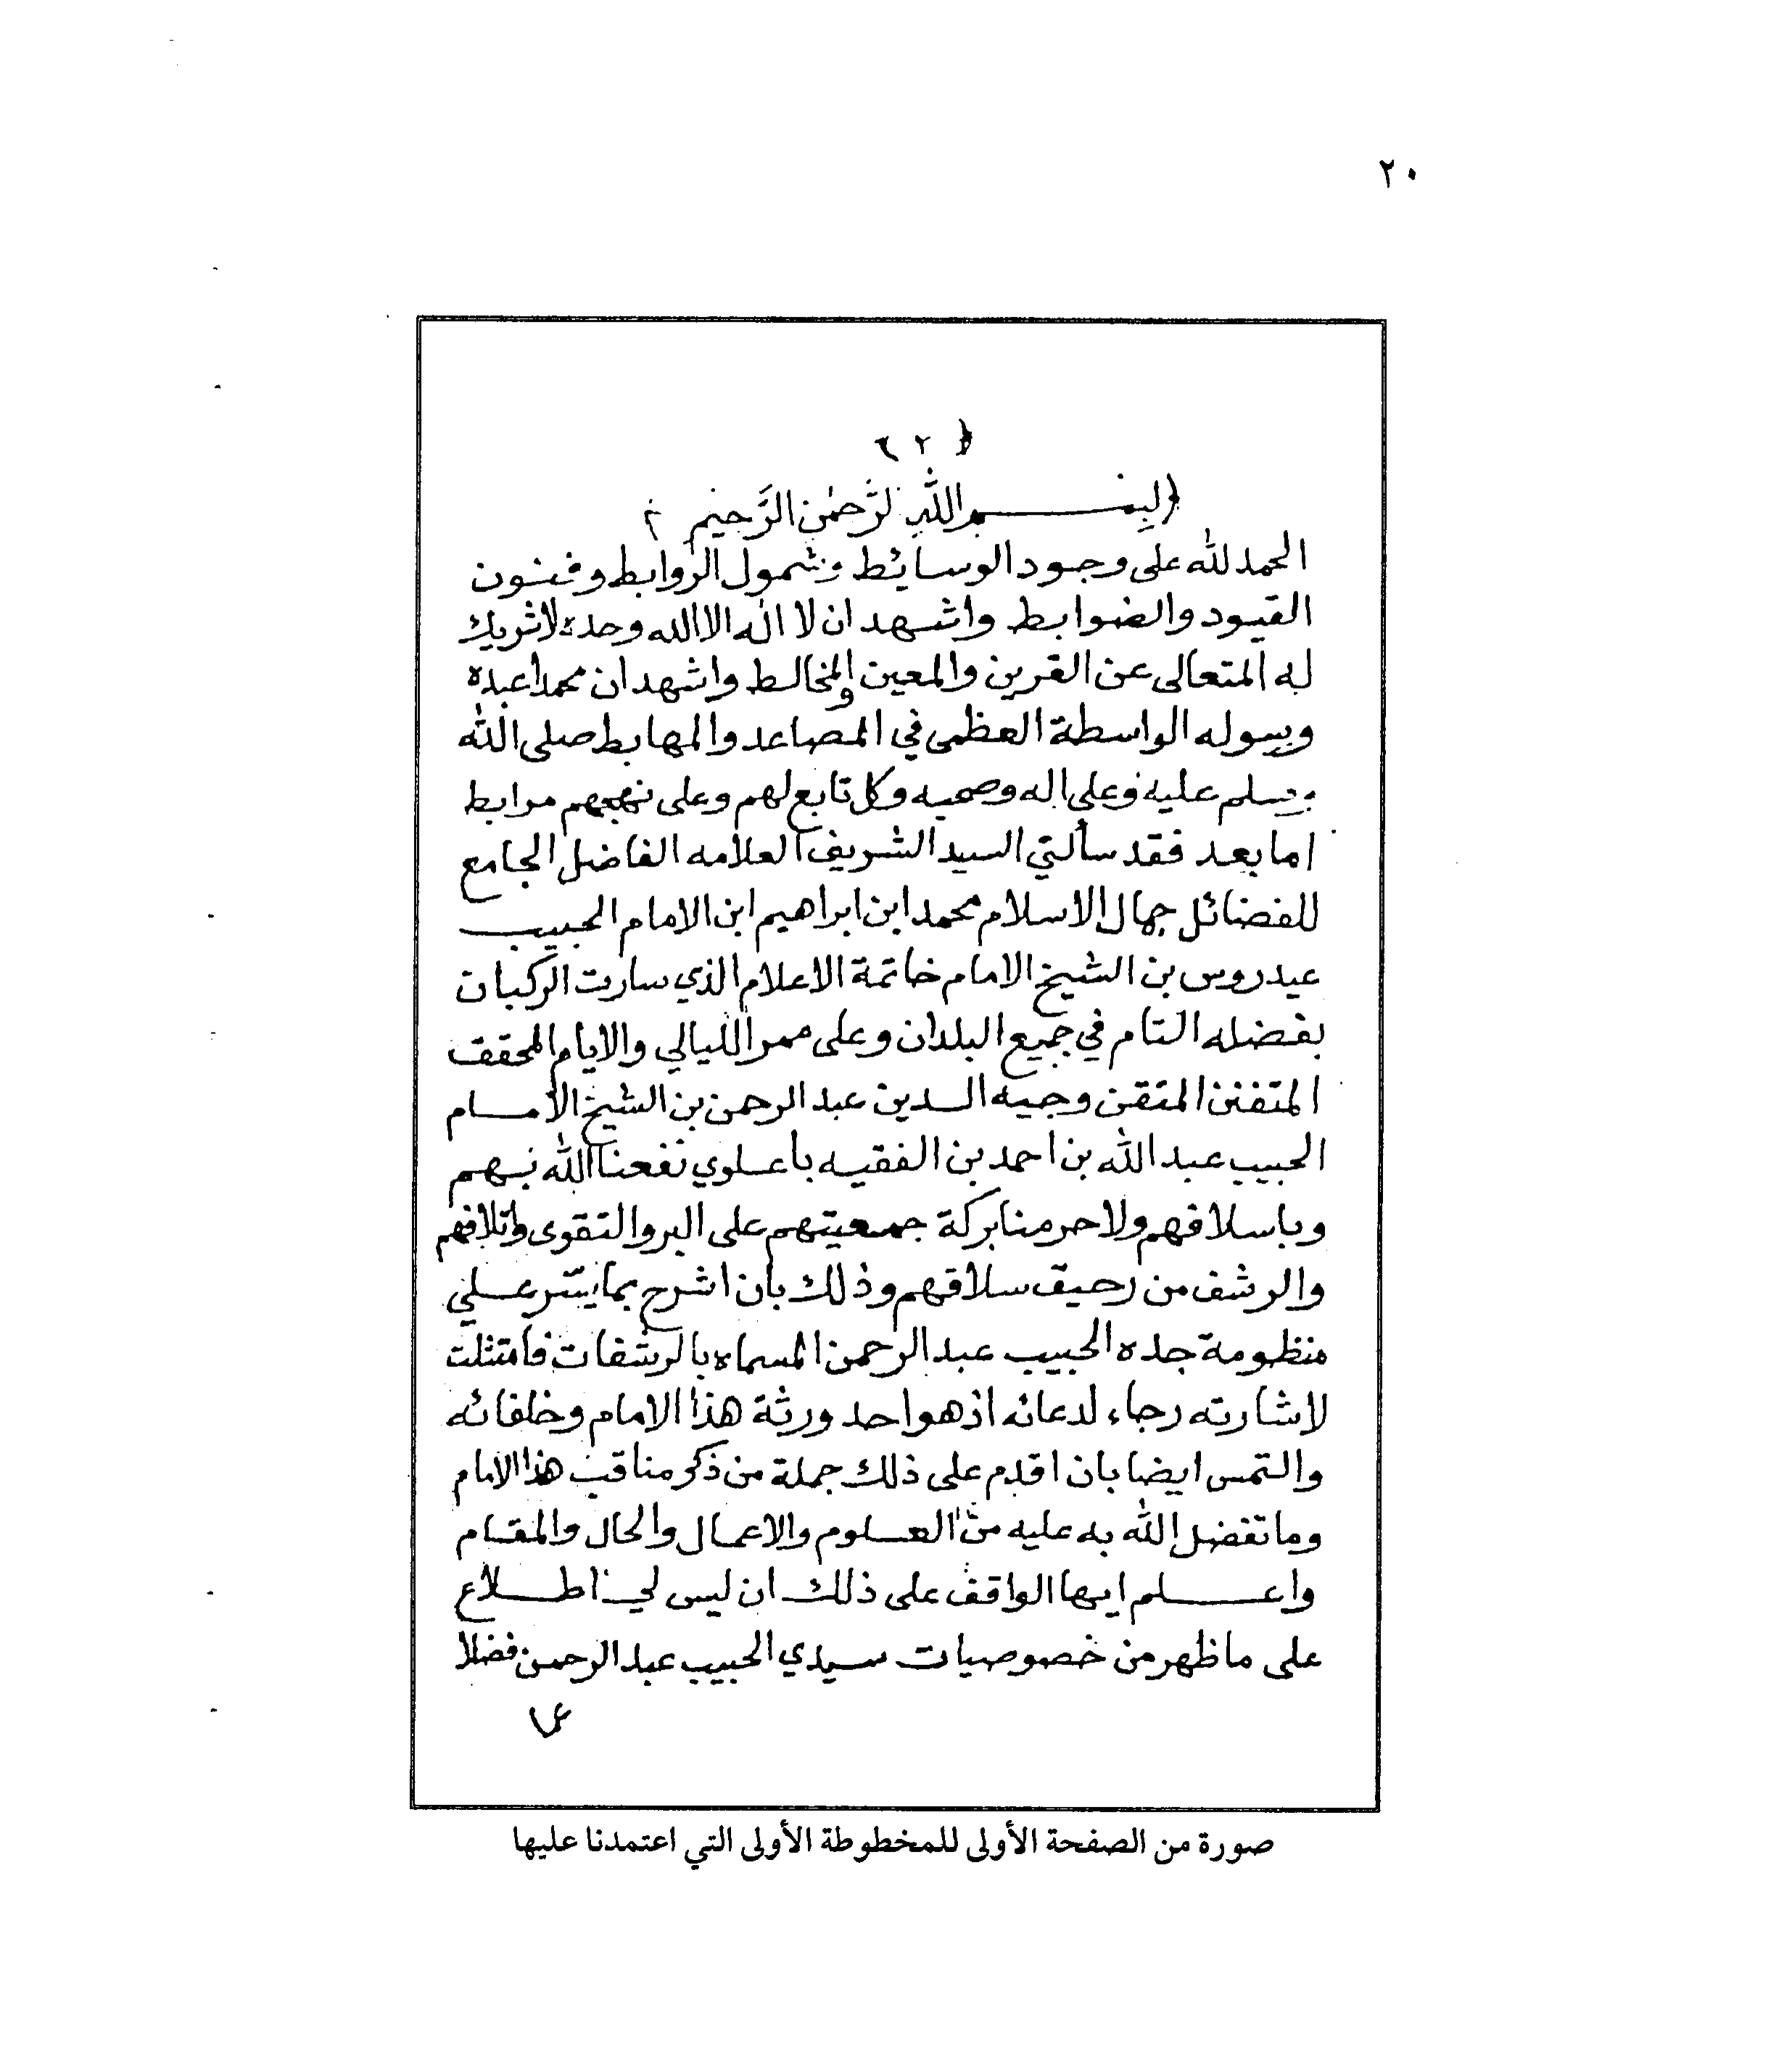 ٢٠
﴿ ٢ ﴾
﴿بِسْمِ اللّٰهِ الرَّحْمٰنِ الرَّحِيْمِ﴾
الحمد لله على وجود الوسائط وشمول الروابط وفنون
القيود والضوابط واشهد ان لا اله الا الله وحده لا شريك
له المتعالى عن القرين والمعين والمخالط واشهد ان محمدا عبده
ورسوله الواسطة العظمى في المصاعد والمهابط صلى الله
وسلم عليه وعلى اله وصحبه وكل تابع لهم وعلى نهجهم مرابط
اما بعد فقد سألتي السيد الشريف العلامه الفاضل الجامع
للفضائل جمال الاسلام محمد ابن ابراهيم ابن الامام الحبيب
عيدروس بن الشيخ الامام خاتمة الاعلام الذي سارت الركبان
بفضله التام في جميع البلدان وعلى ممر الليالي والايام المحقق
المتفنن المتقن وجيه الدين عبد الرحمن بن الشيخ الامام
الحبيب عبد الله بن احمد بن الفقيه باعلوي نفعنا الله بهم
وباسلافهم ولا حرمنا بركة جمعيتهم على البر والتقوى وائتلافهم
والرشف من رحيق سلافهم وذلك بان اشرح بما يسّر علي
منظومة جده الحبيب عبد الرحمن المسماه بالرشفات فامتثلت
لاشارته رجاء لدعائه اذ هو احد ورثة هذا الامام وخلفائه
والتمس ايضا بان اقدم على ذلك جملة من ذكر مناقب هذا الامام
وما تفضل الله به عليه من العلوم والاعمال والحال والمقام
واعلم ايها الواقف على ذلك ان ليس لي اطلاع
على ما ظهر من خصوصيات سيدي الحبيب عبد الرحمن فضلا
عن
صورة من الصفحة الأولى للمخطوطة الأولى التي اعتمدنا عليها